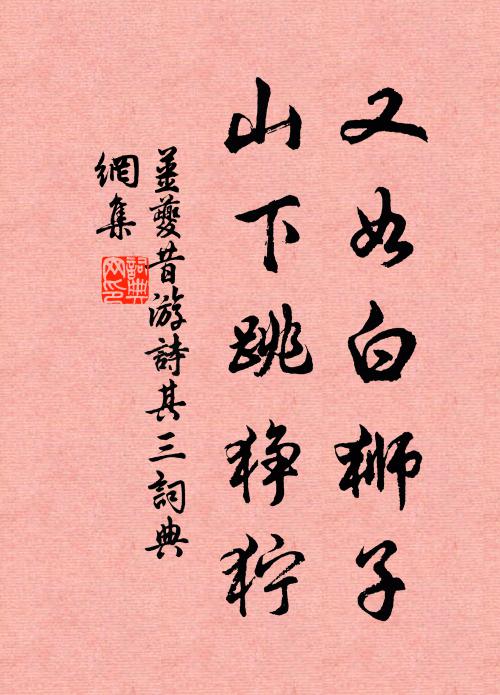 又如白狮子
山下跳狰狞
姜夔昔游詩其三詞典
網集
詞典
网印